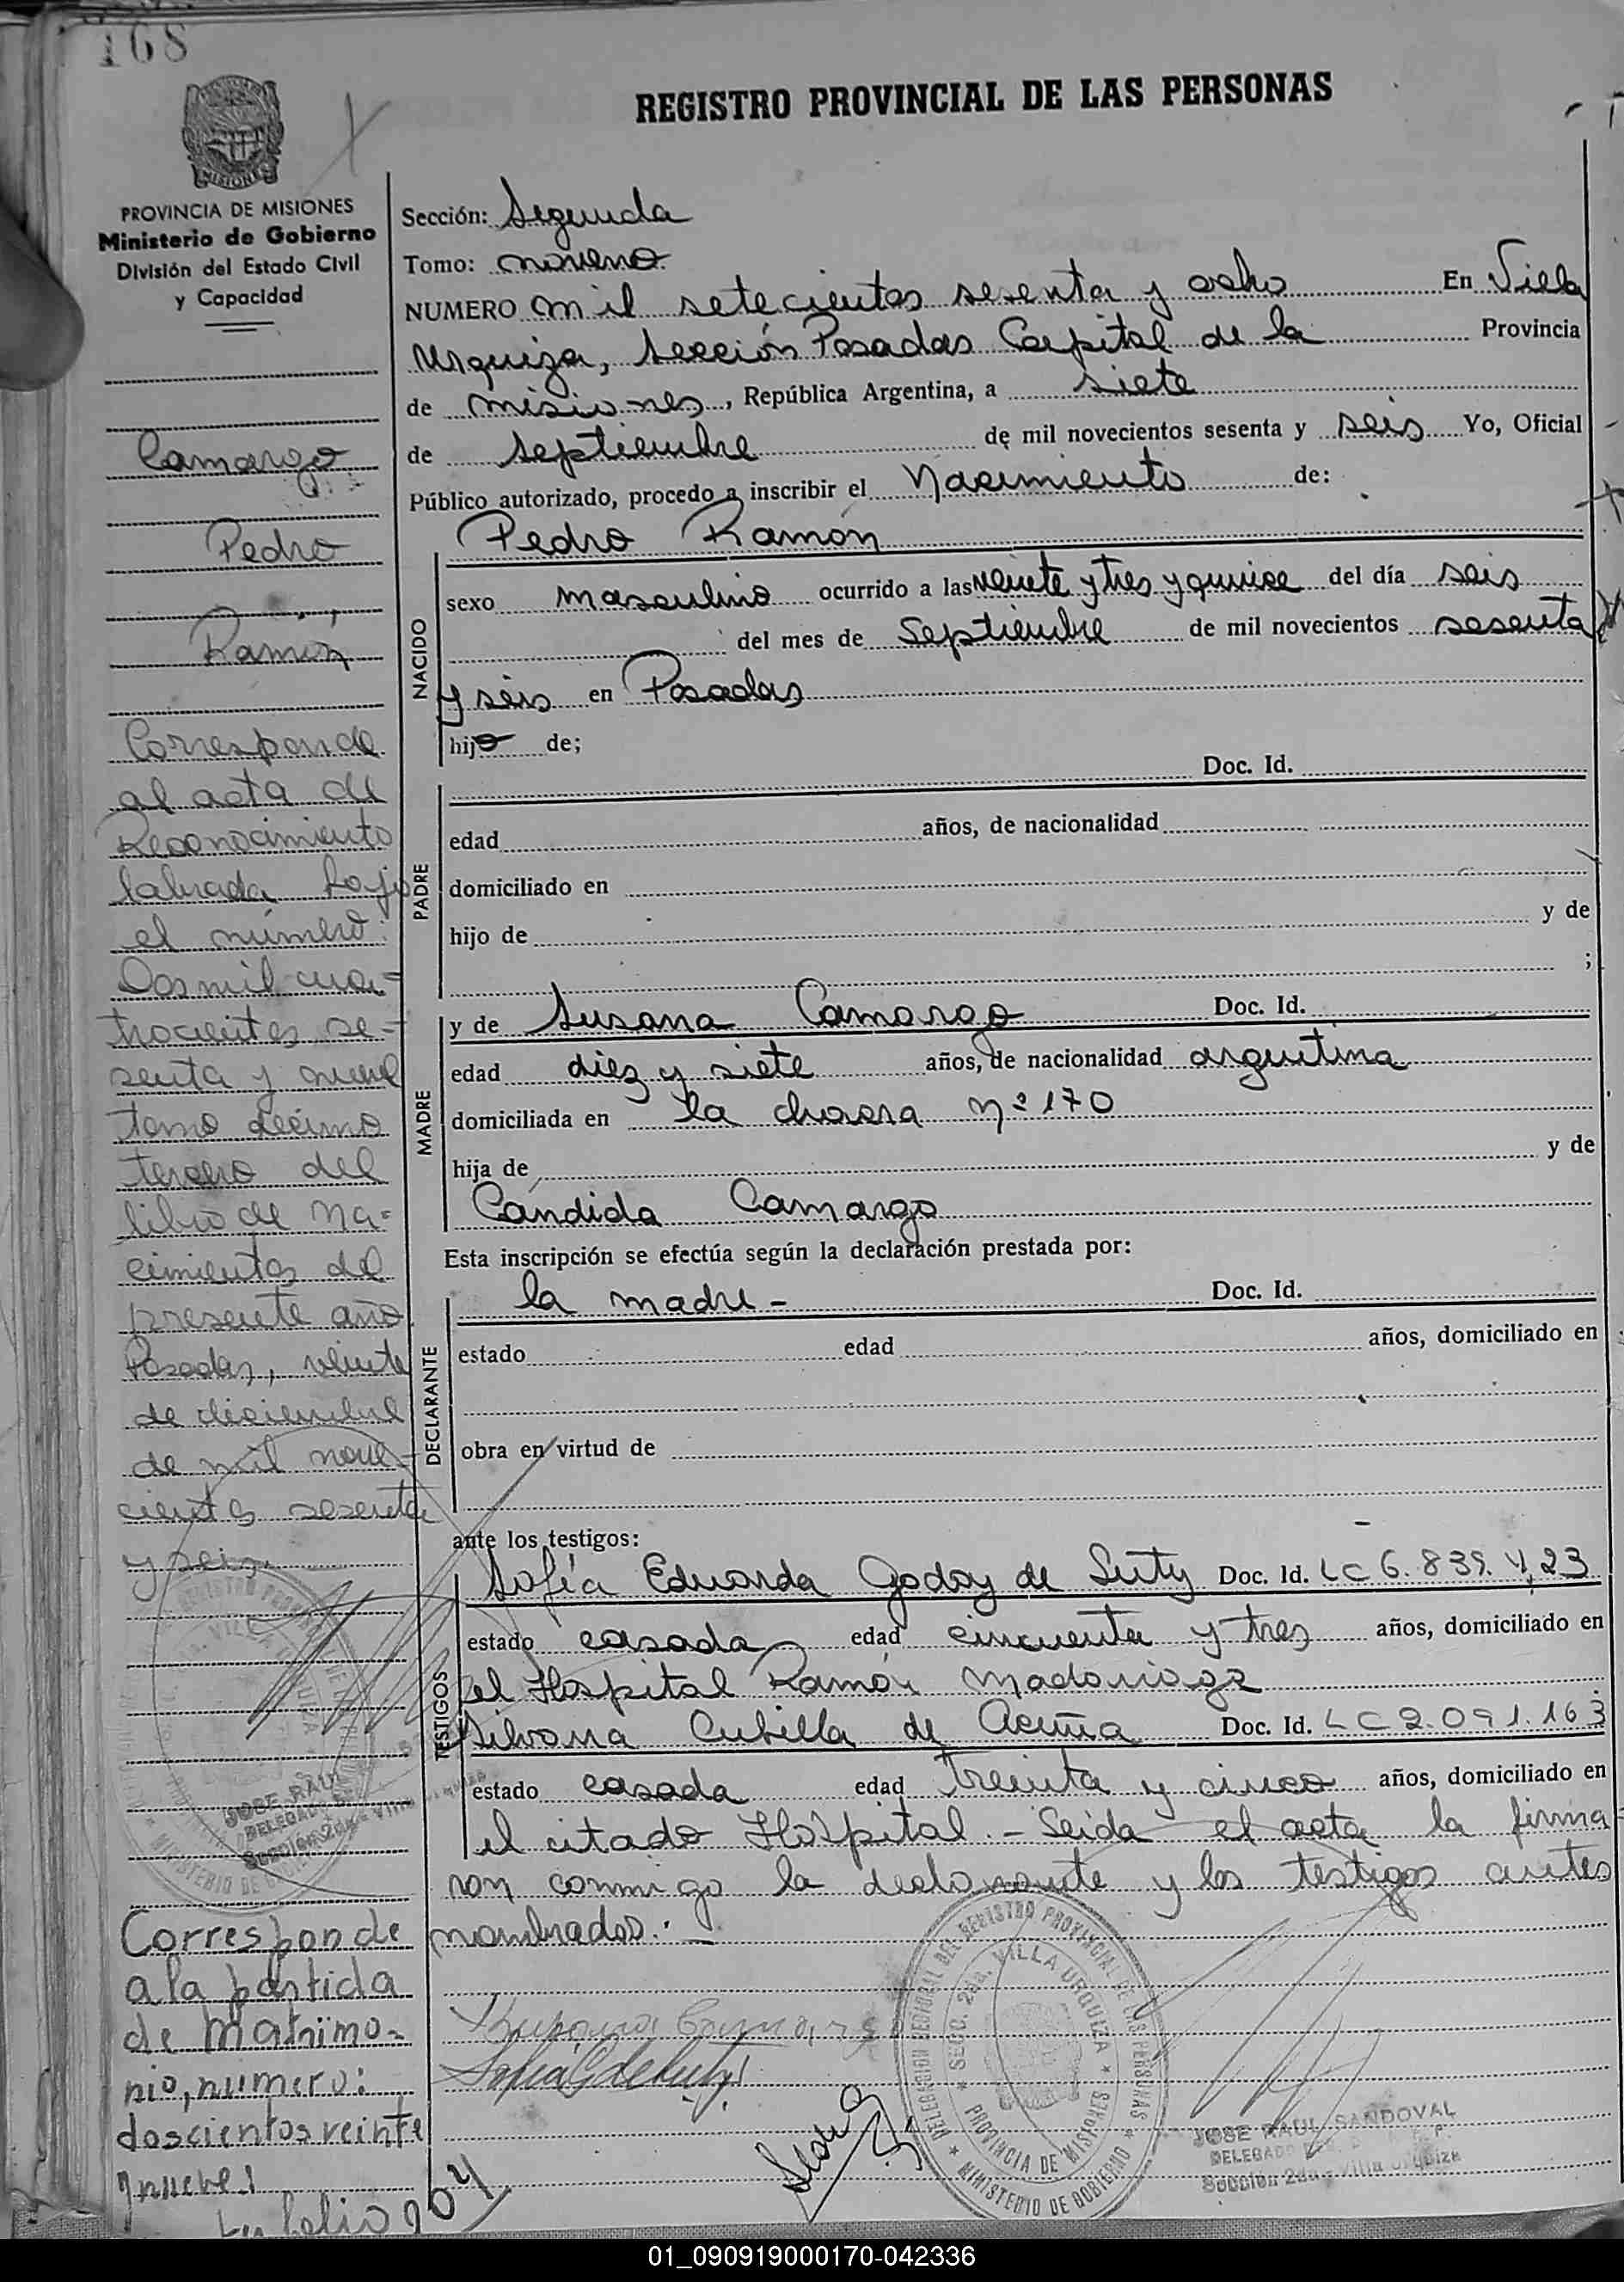 168
REGISTRO PROVINCIAL DE LAS PERSONAS
MISIONES
PROVINCIA DE MISIONES
Ministerio de Gobierno
División del Estado Civil
y Capacidad
Camargo
Pedro
Ramón
Corresponde
al acta de
Reconocimiento
labrada bajo
el número:
Dos mil cua=
trocientos se-
senta y nueve
tomo décimo
tercero del
libro de Na=
cimientos del
presente año
Posadas, veinte
de diciembre
de mil nove-
cientos sesenta
y seis
JOSE RAUL
DELEGADO
Sección 2da - Villa Urquiza
Corresponde
a la partida
de Matrimo=
nio, numero:
doscientos veinte
y nueve
folio 904
Sección: Segunda
Tomo: noveno
NUMERO mil setecientos sesenta y ocho En Villa
Urquiza, Sección Posadas Capital de la Provincia
de Misiones, República Argentina, a siete
de septiembre de mil novecientos sesenta y seis Yo, Oficial
Público autorizado, procedo a inscribir el Nacimiento de:
NACIDO
Pedro Ramón
sexo masculino ocurrido a las veinte y tres y quince del día seis
del mes de Septiembre de mil novecientos sesenta
y seis en Posadas
hijo de;
PADRE
Doc. Id.
edad años, de nacionalidad
domiciliado en
hijo de y de
;
MADRE
y de Susana Camargo Doc. Id.
edad diez y siete años, de nacionalidad argentina
domiciliada en la chacra nº 170
hija de y de
Cándida Camargo
Esta inscripción se efectúa según la declaración prestada por:
DECLARANTE
la madre - Doc. Id.
estado edad años, domiciliado en
obra en virtud de
ante los testigos:
TESTIGOS
Sofía Eduarda Godoy de Suty Doc. Id. LC 6.839.423
estado casada edad cincuenta y tres años, domiciliado en
el Hospital Ramón Madariaga
Silvana Cubilla de Acuña Doc. Id. LC 2.091.163
estado casada edad treinta y cinco años, domiciliado en
el citado Hospital. - Leida el acta la firma
ron conmigo la declarante y los testigos antes
nombrados. -
Susana Camargo
DELEGACION REGIONAL DEL REGISTRO PROVINCIAL DE LAS PERSONAS
SECC. 2da. VILLA URQUIZA
PROVINCIA DE MISIONES
MINISTERIO DE GOBIERNO
JOSE RAUL SANDOVAL
DELEGADO
Sección 2da - Villa Urquiza
01_090919000170-042336